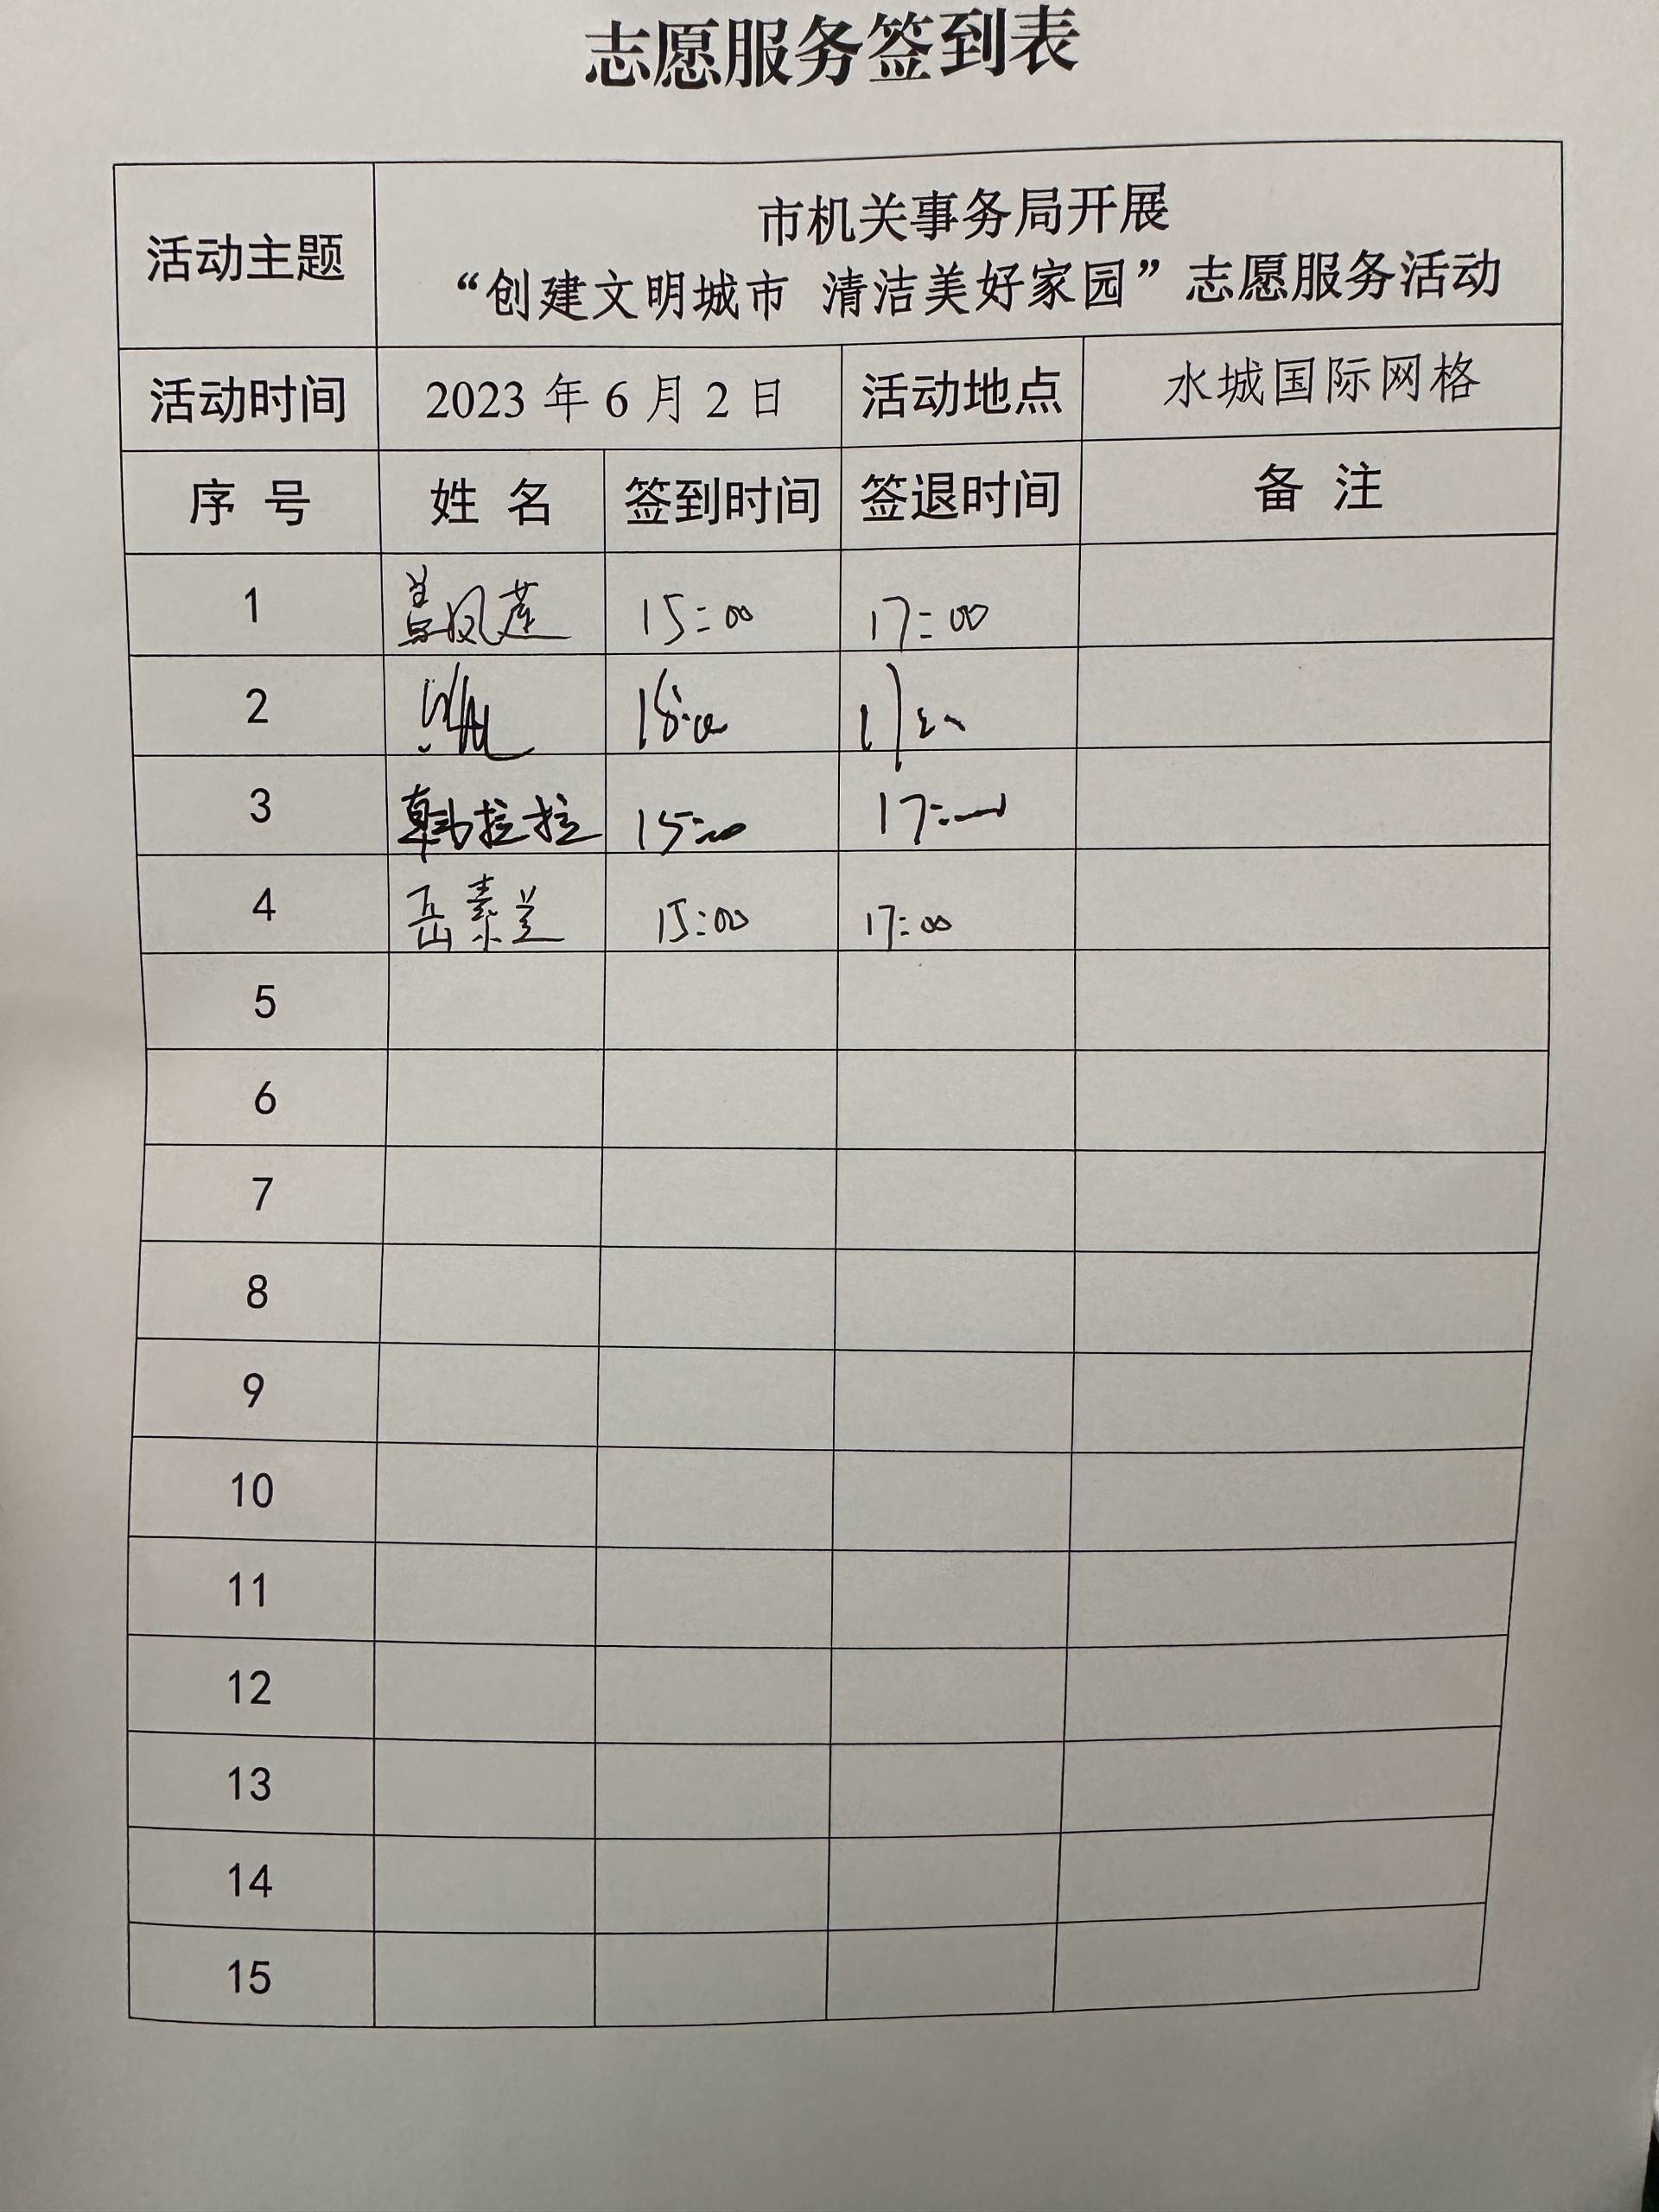 志愿服务签到表
活动主题
市机关事务局开展
“创建文明城市 清洁美好家园”志愿服务活动
活动时间 2023 年 6 月 2 日 活动地点 水城国际网格
序 号 姓 名 签到时间 签退时间 备 注
1 凤莲 15:00 17:00
2
3 韩拉拉 15:00 17:
4 岳素兰 15:00 17:00
5
6
7
8
9
10
11
12
13
14
15